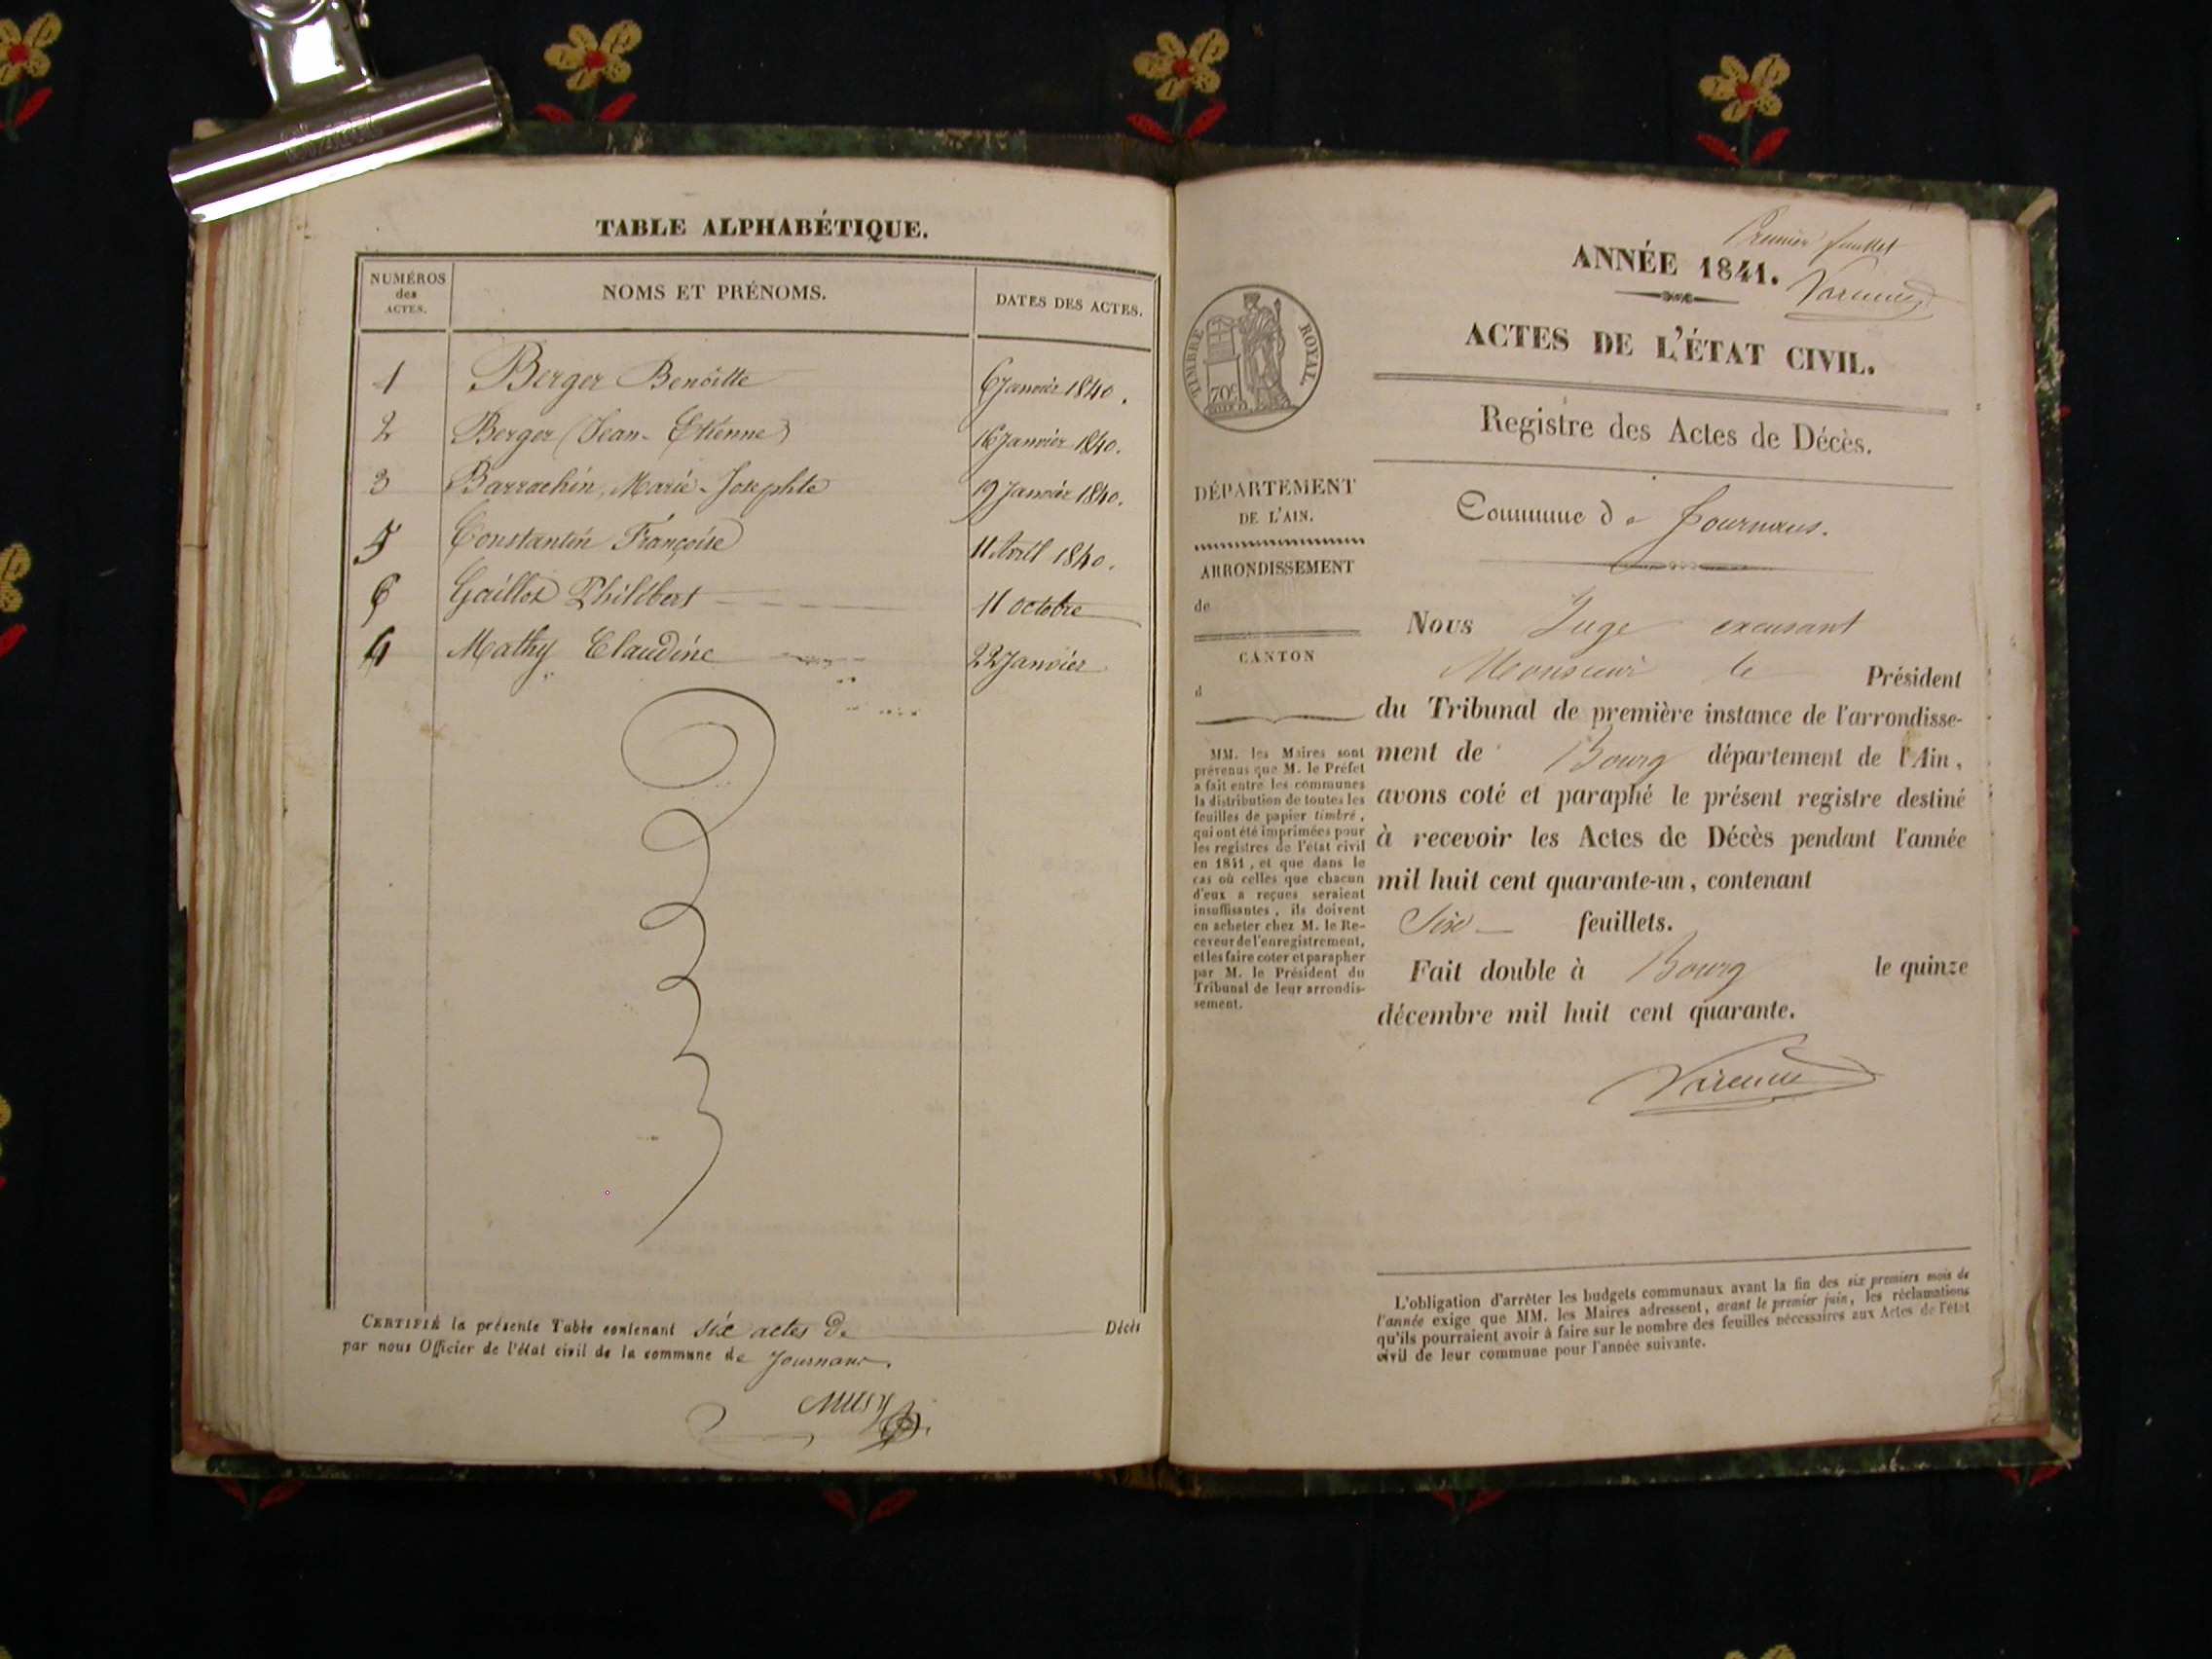 TABLE ALPHABÉTIQUE.
NUMÉROS des ACTES. NOMS ET PRÉNOMS. DATES DES ACTES.
1 Berger Benoitte 6 Janvier 1840.
2 Berger (Jean-Etienne) 16 Janvier 1840.
3 Barrachin, Marie-Josephte 19 Janvier 1840.
5 Constantin Françoise 11 Avril 1840.
6 Gaillot Philibert 11 octobre
4 Mathy Claudine 22 Janvier
CERTIFIÉ la présente Table contenant six actes de Décès
par nous Officier de l'état civil de la commune de Journans.
Musy
Premier feuillet
ANNÉE 1841.
ACTES DE L'ÉTAT CIVIL.
Registre des Actes de Décès.
Commune de Journans.
TIMBRE ROYAL.
70c
DÉPARTEMENT
DE L'AIN.
ARRONDISSEMENT
de
CANTON
d
MM. les Maires sont
prévenus que M. le Préfet
a fait entre les communes
la distribution de toutes les
feuilles de papier timbré,
qui ont été imprimées pour
les registres de l'état civil
en 1841, et que dans le
cas où celles que chacun
d'eux a reçues seraient
insuffisantes, ils doivent
en acheter chez M. le Re-
ceveur de l'enregistrement,
et les faire coter et parapher
par M. le Président du
Tribunal de leur arrondis-
sement.
Nous Juge excusant
Monsieur le Président
du Tribunal de première instance de l'arrondisse-
ment de Bourg département de l'Ain,
avons coté et paraphé le présent registre destiné
à recevoir les Actes de Décès pendant l'année
mil huit cent quarante-un, contenant
Six feuillets.
Fait double à Bourg le quinze
décembre mil huit cent quarante.
L'obligation d'arrêter les budgets communaux avant la fin des six premiers mois de
l'année exige que MM. les Maires adressent, avant le premier juin, les réclamations
qu'ils pourraient avoir à faire sur le nombre des feuilles nécessaires aux Actes de l'état
civil de leur commune pour l'année suivante.